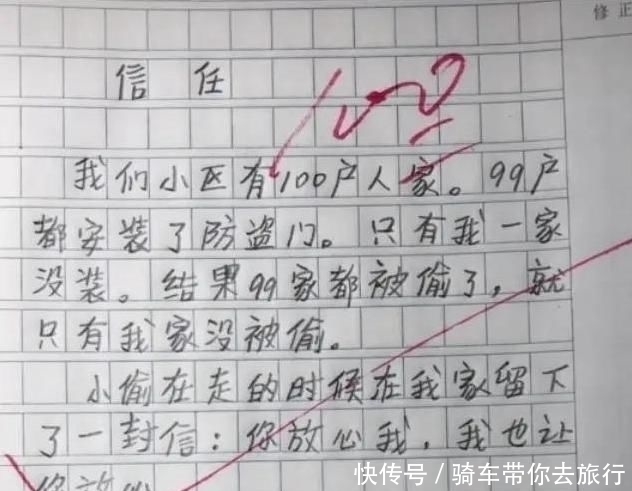 修正
信任
100
我们小区有100户人家。99户
都安装了防盗门。只有我一家
没装。结果99家都被偷了,就
只有我家没被偷。
小偷在走的时候在我家留下
了一封信:你放心我,我也让
你放心
快传号/骑车带你去旅行